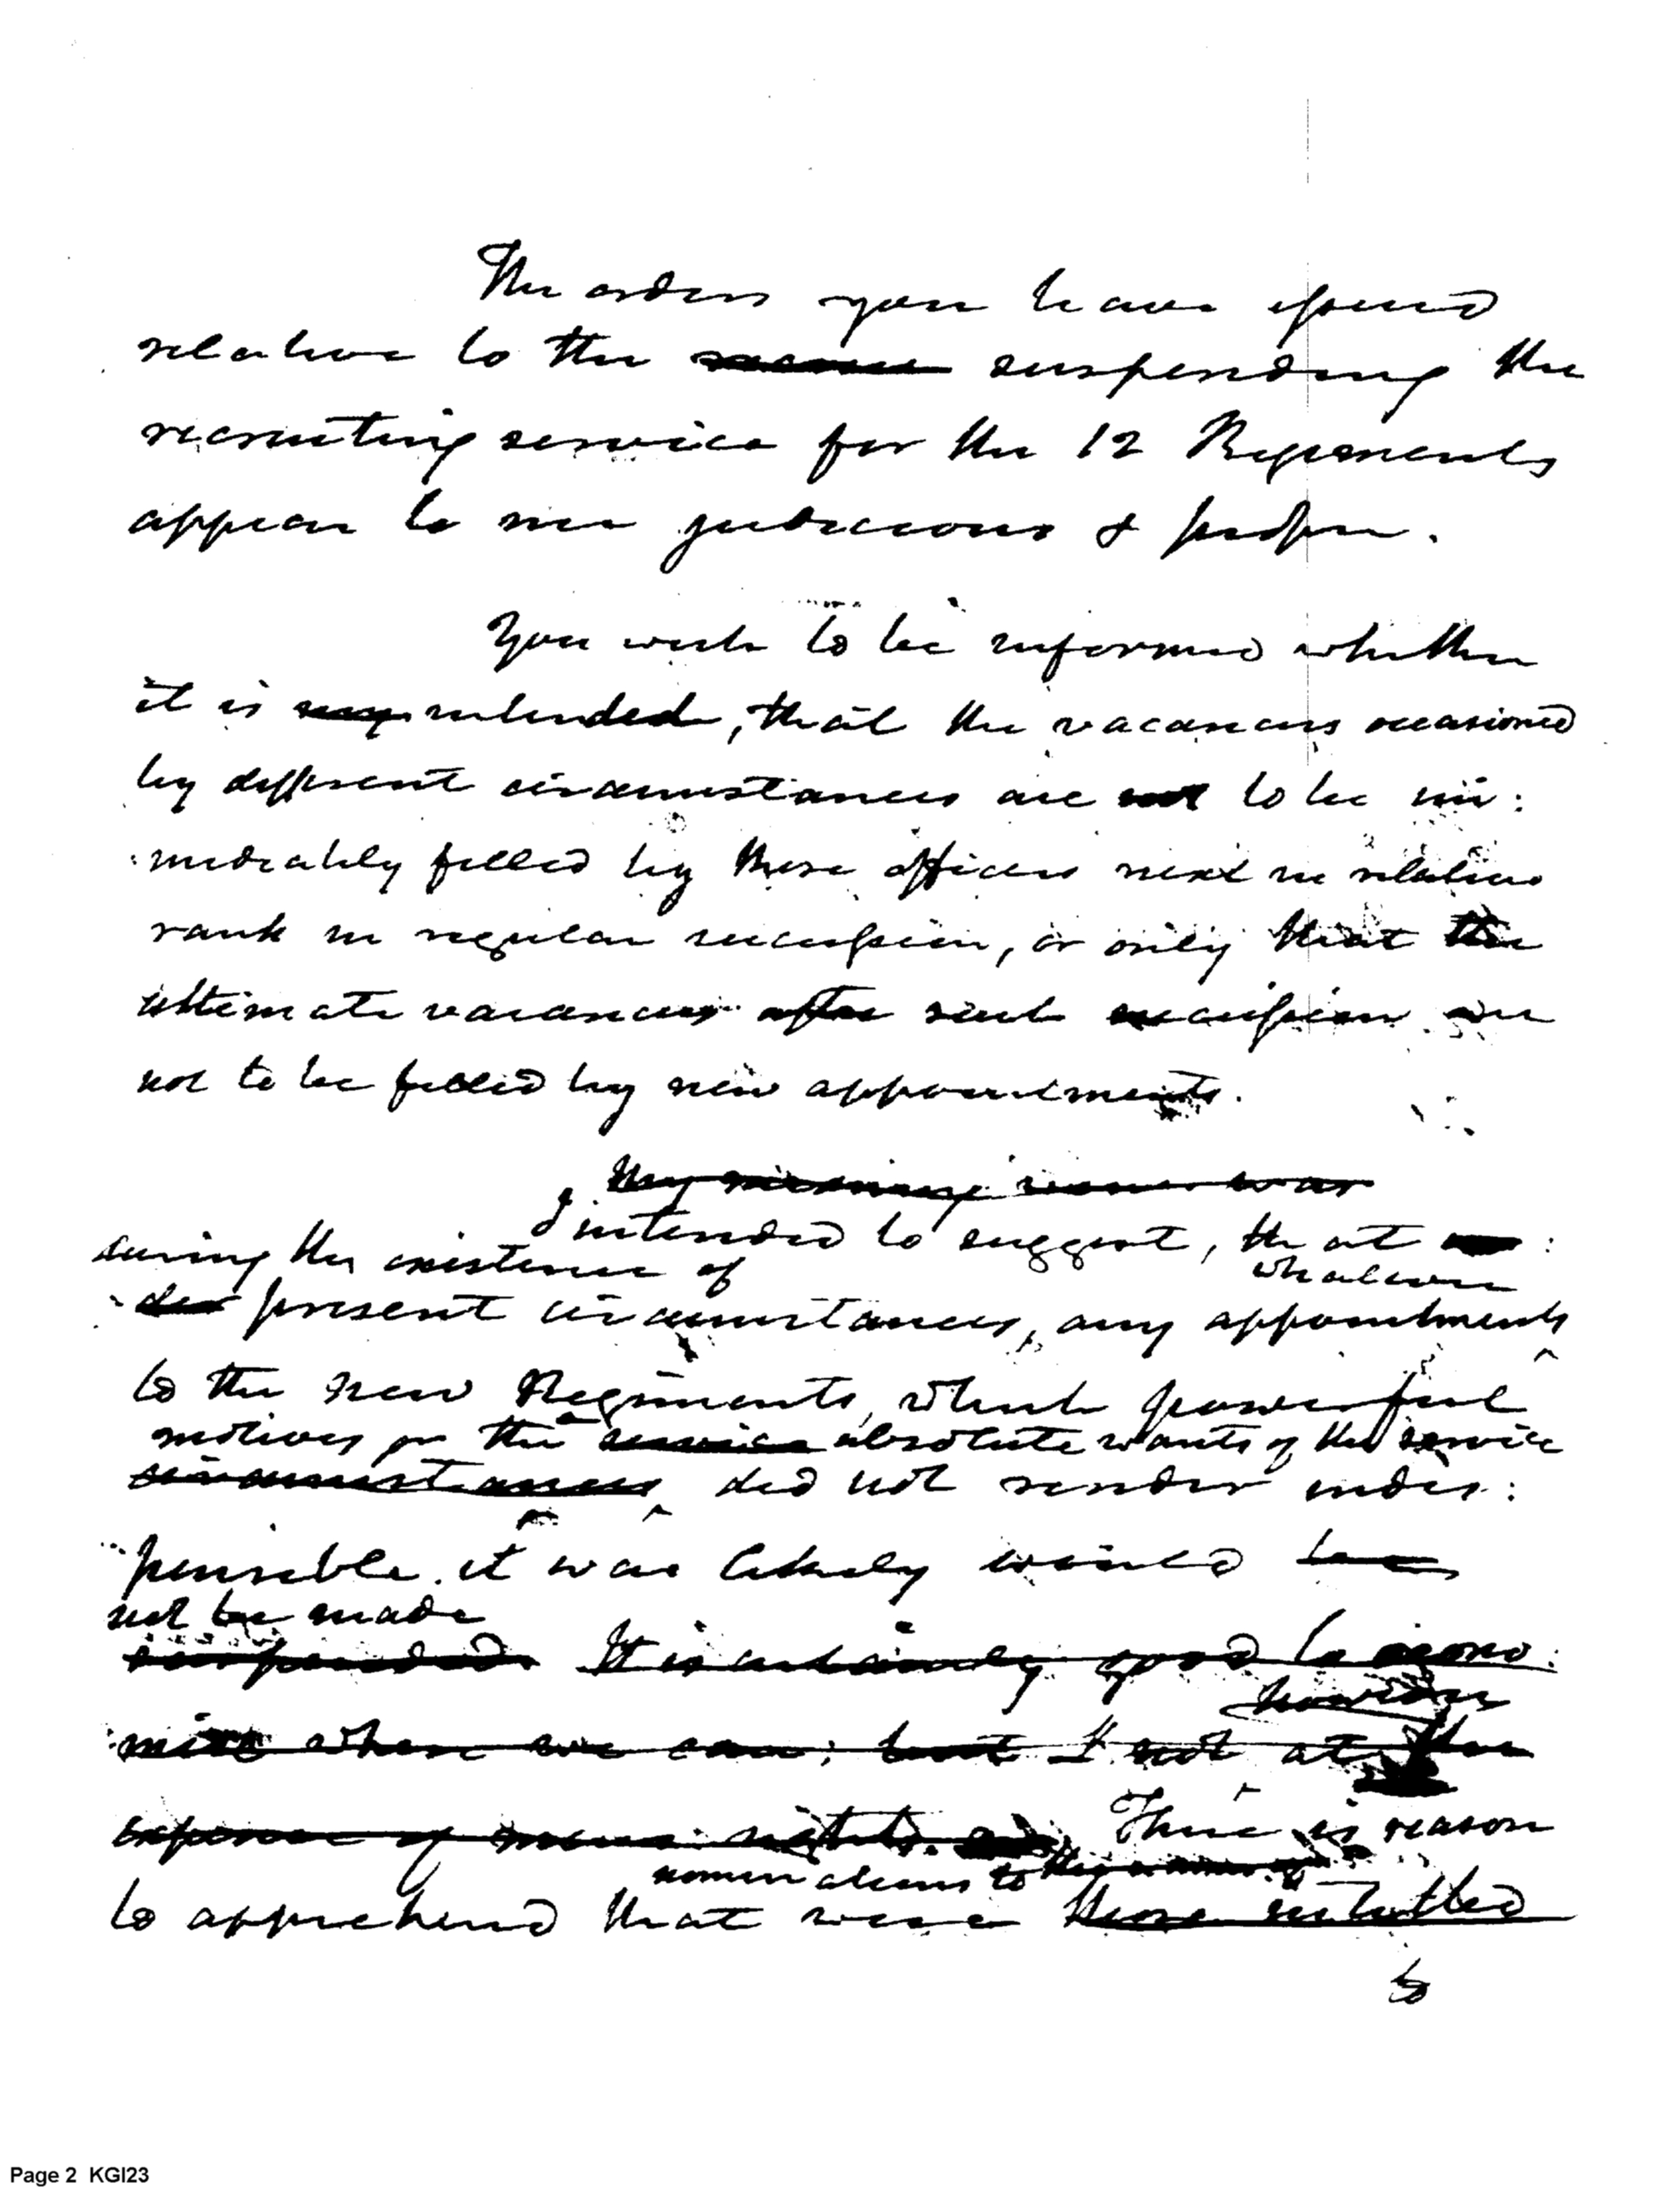 The orders you have issued
relative to the suspending the
recruiting service for the 12 Regiments
appear to me judicious & proper.
You wish to be informed whether
it is intended, that the vacancies occasioned
by different circumstances are not to be im:
mediately filled by those officers next in relative
rank in regular succession, or only that the
ultimate vacancies after such succession are
not to be filled by new appointments.
My meaning was
I intended to suggest, that
during the existence of
whatever
present circumstances, any appointments
to the new Regiments, which powerful
motives or the service absolute wants of the service
circumstances did not render indis:
pensible. it was likely would be
not be made
suspended. It is certainly good to econo:
however
mise where we can; but I not at the
expense of mens rights. There is reason
nominations to
to apprehend that were those entitled
to
Page 2 KGI23